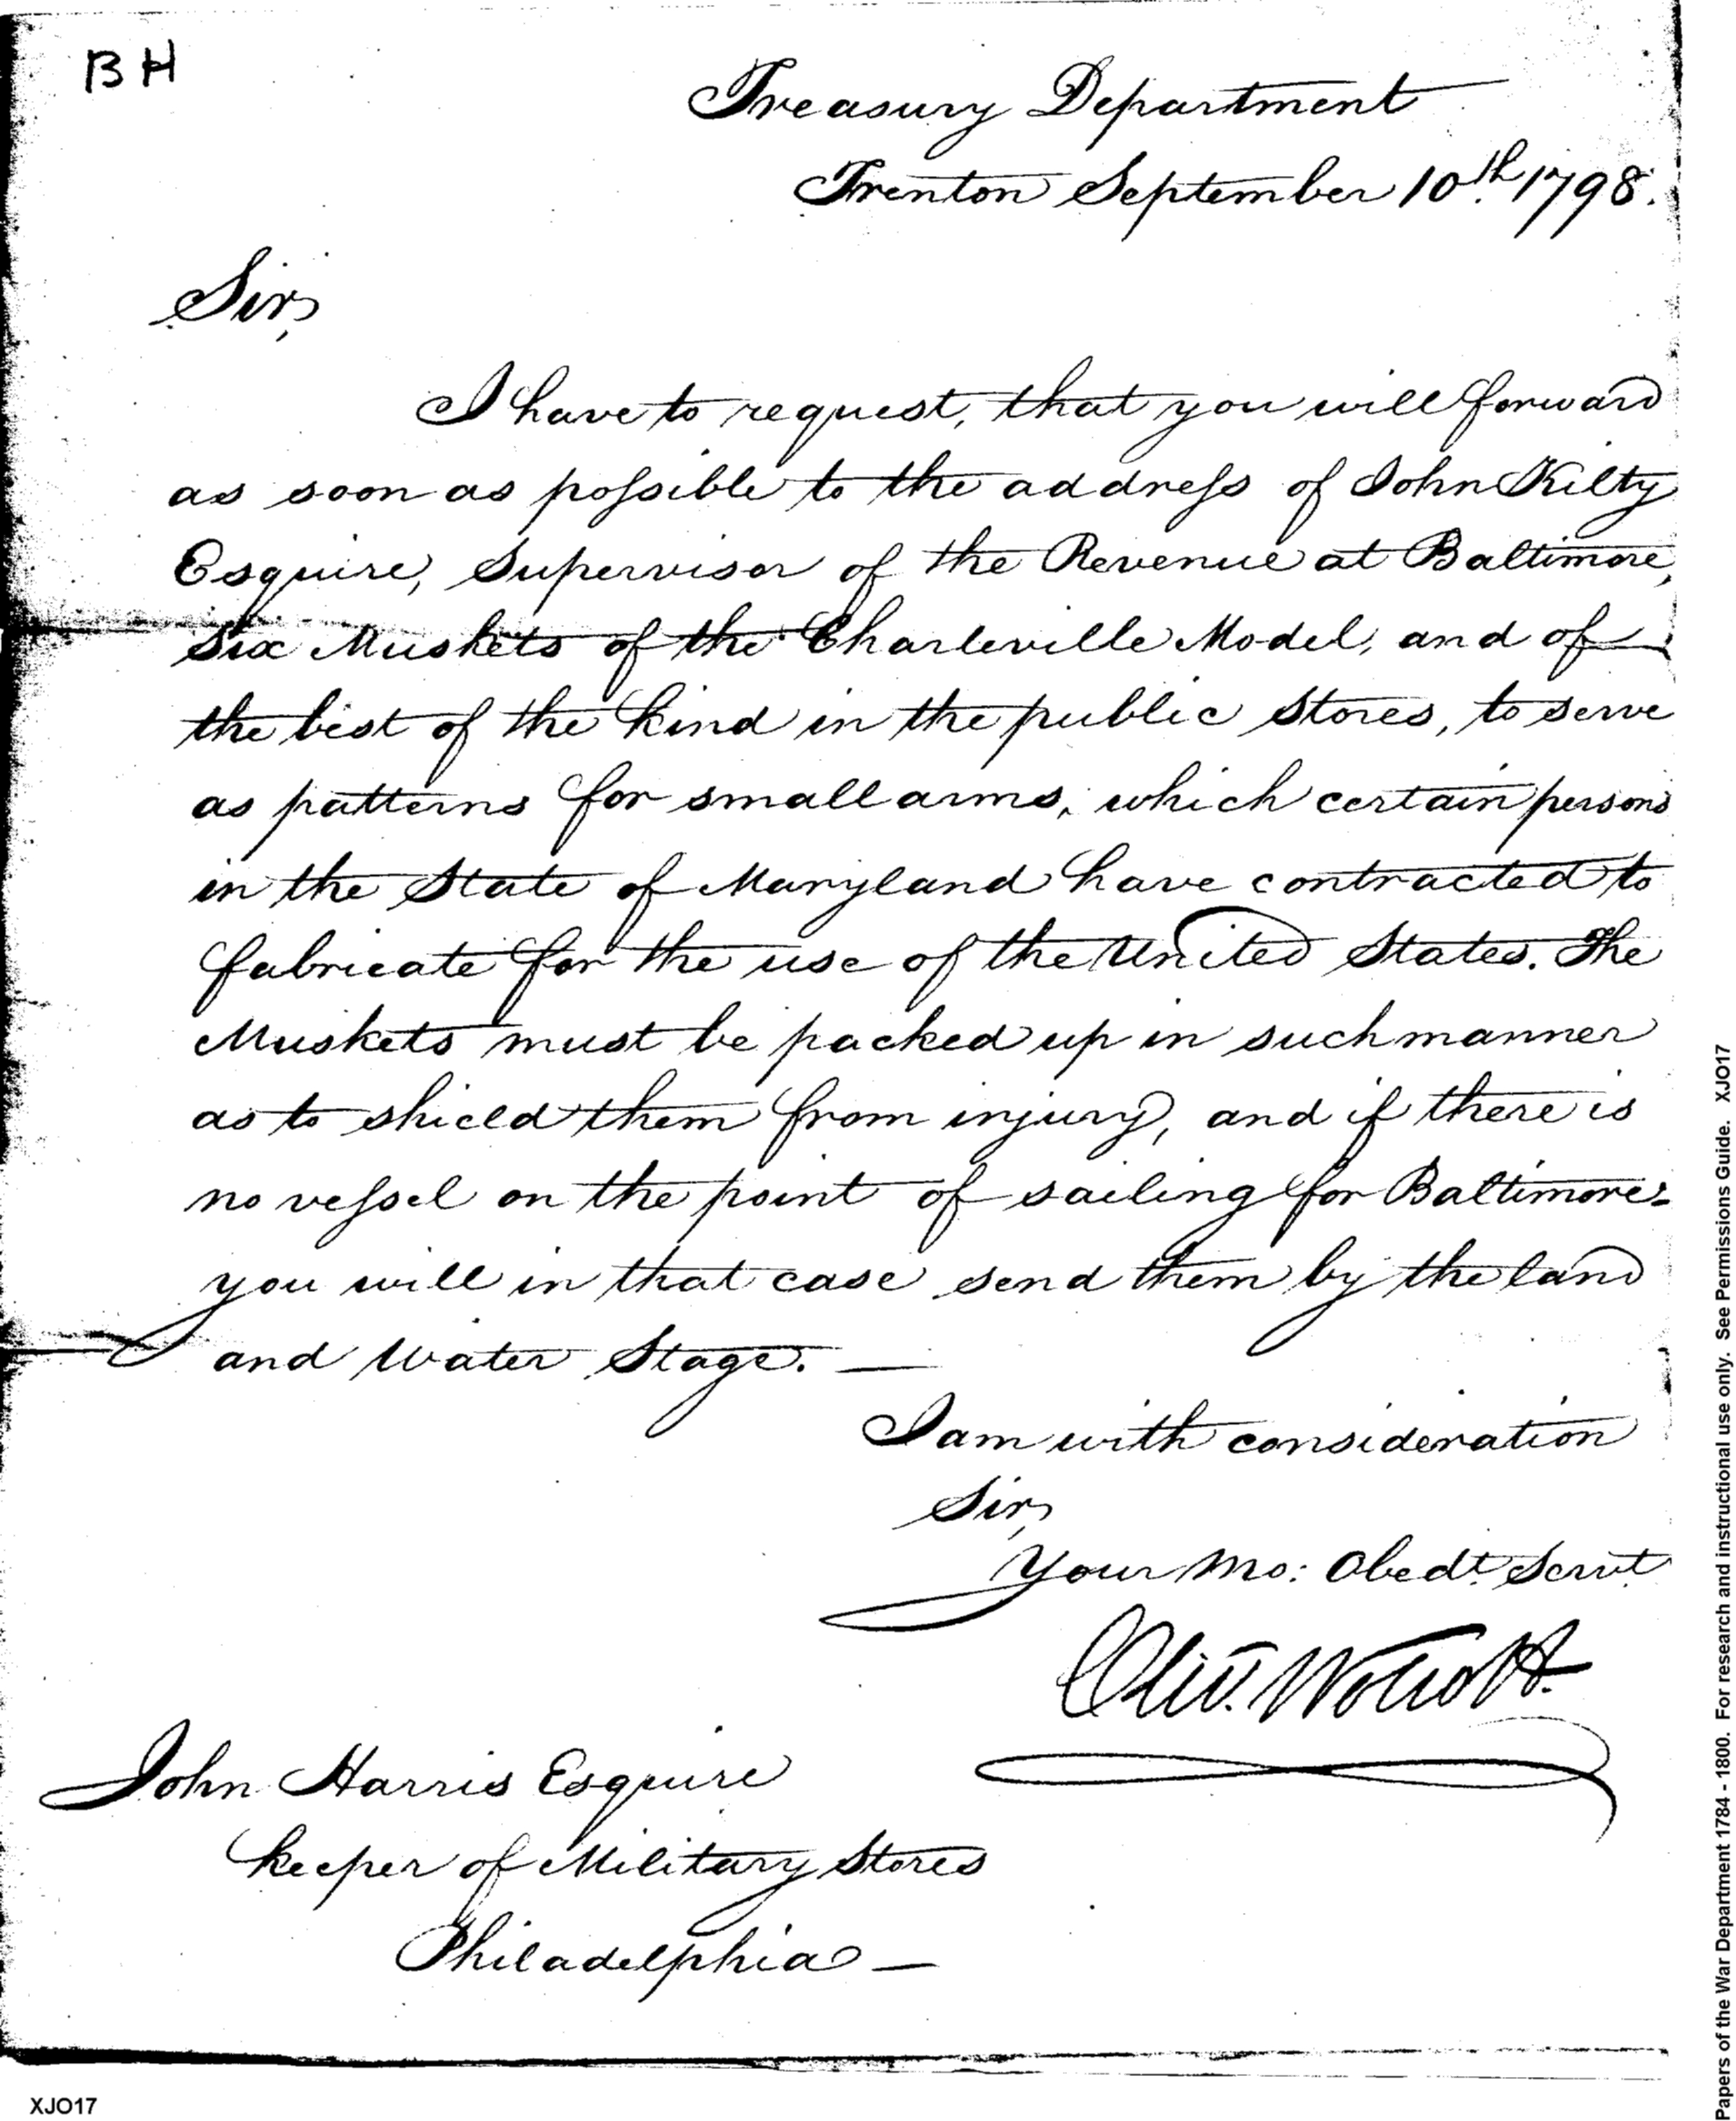 BH
Treasury Department
Trenton September 10th. 1798.
Sir,
I have to request, that you will forward
as soon as possible to the address of John Kilty
Esquire, Supervisor of the Revenue at Baltimore,
Six Muskets of the Charleville Model, and of
the best of the kind in the public Stores, to serve
as patterns for small arms, which certain persons
in the State of Maryland have contracted to
fabricate for the use of the United States. The
Muskets must be packed up in such manner
as to shield them from injury, and if there is
no vessel on the point of sailing for Baltimore,
you will in that case send them by the land
and Water Stage. —
I am with consideration
Sir,
Your Mo: Obedt. Servt.
Oliv. Wolcott.
John Harris Esquire
Keeper of Military Stores
Philadelphia —
XJO17
Papers of the War Department 1784 - 1800. For research and instructional use only. See Permissions Guide. XJO17